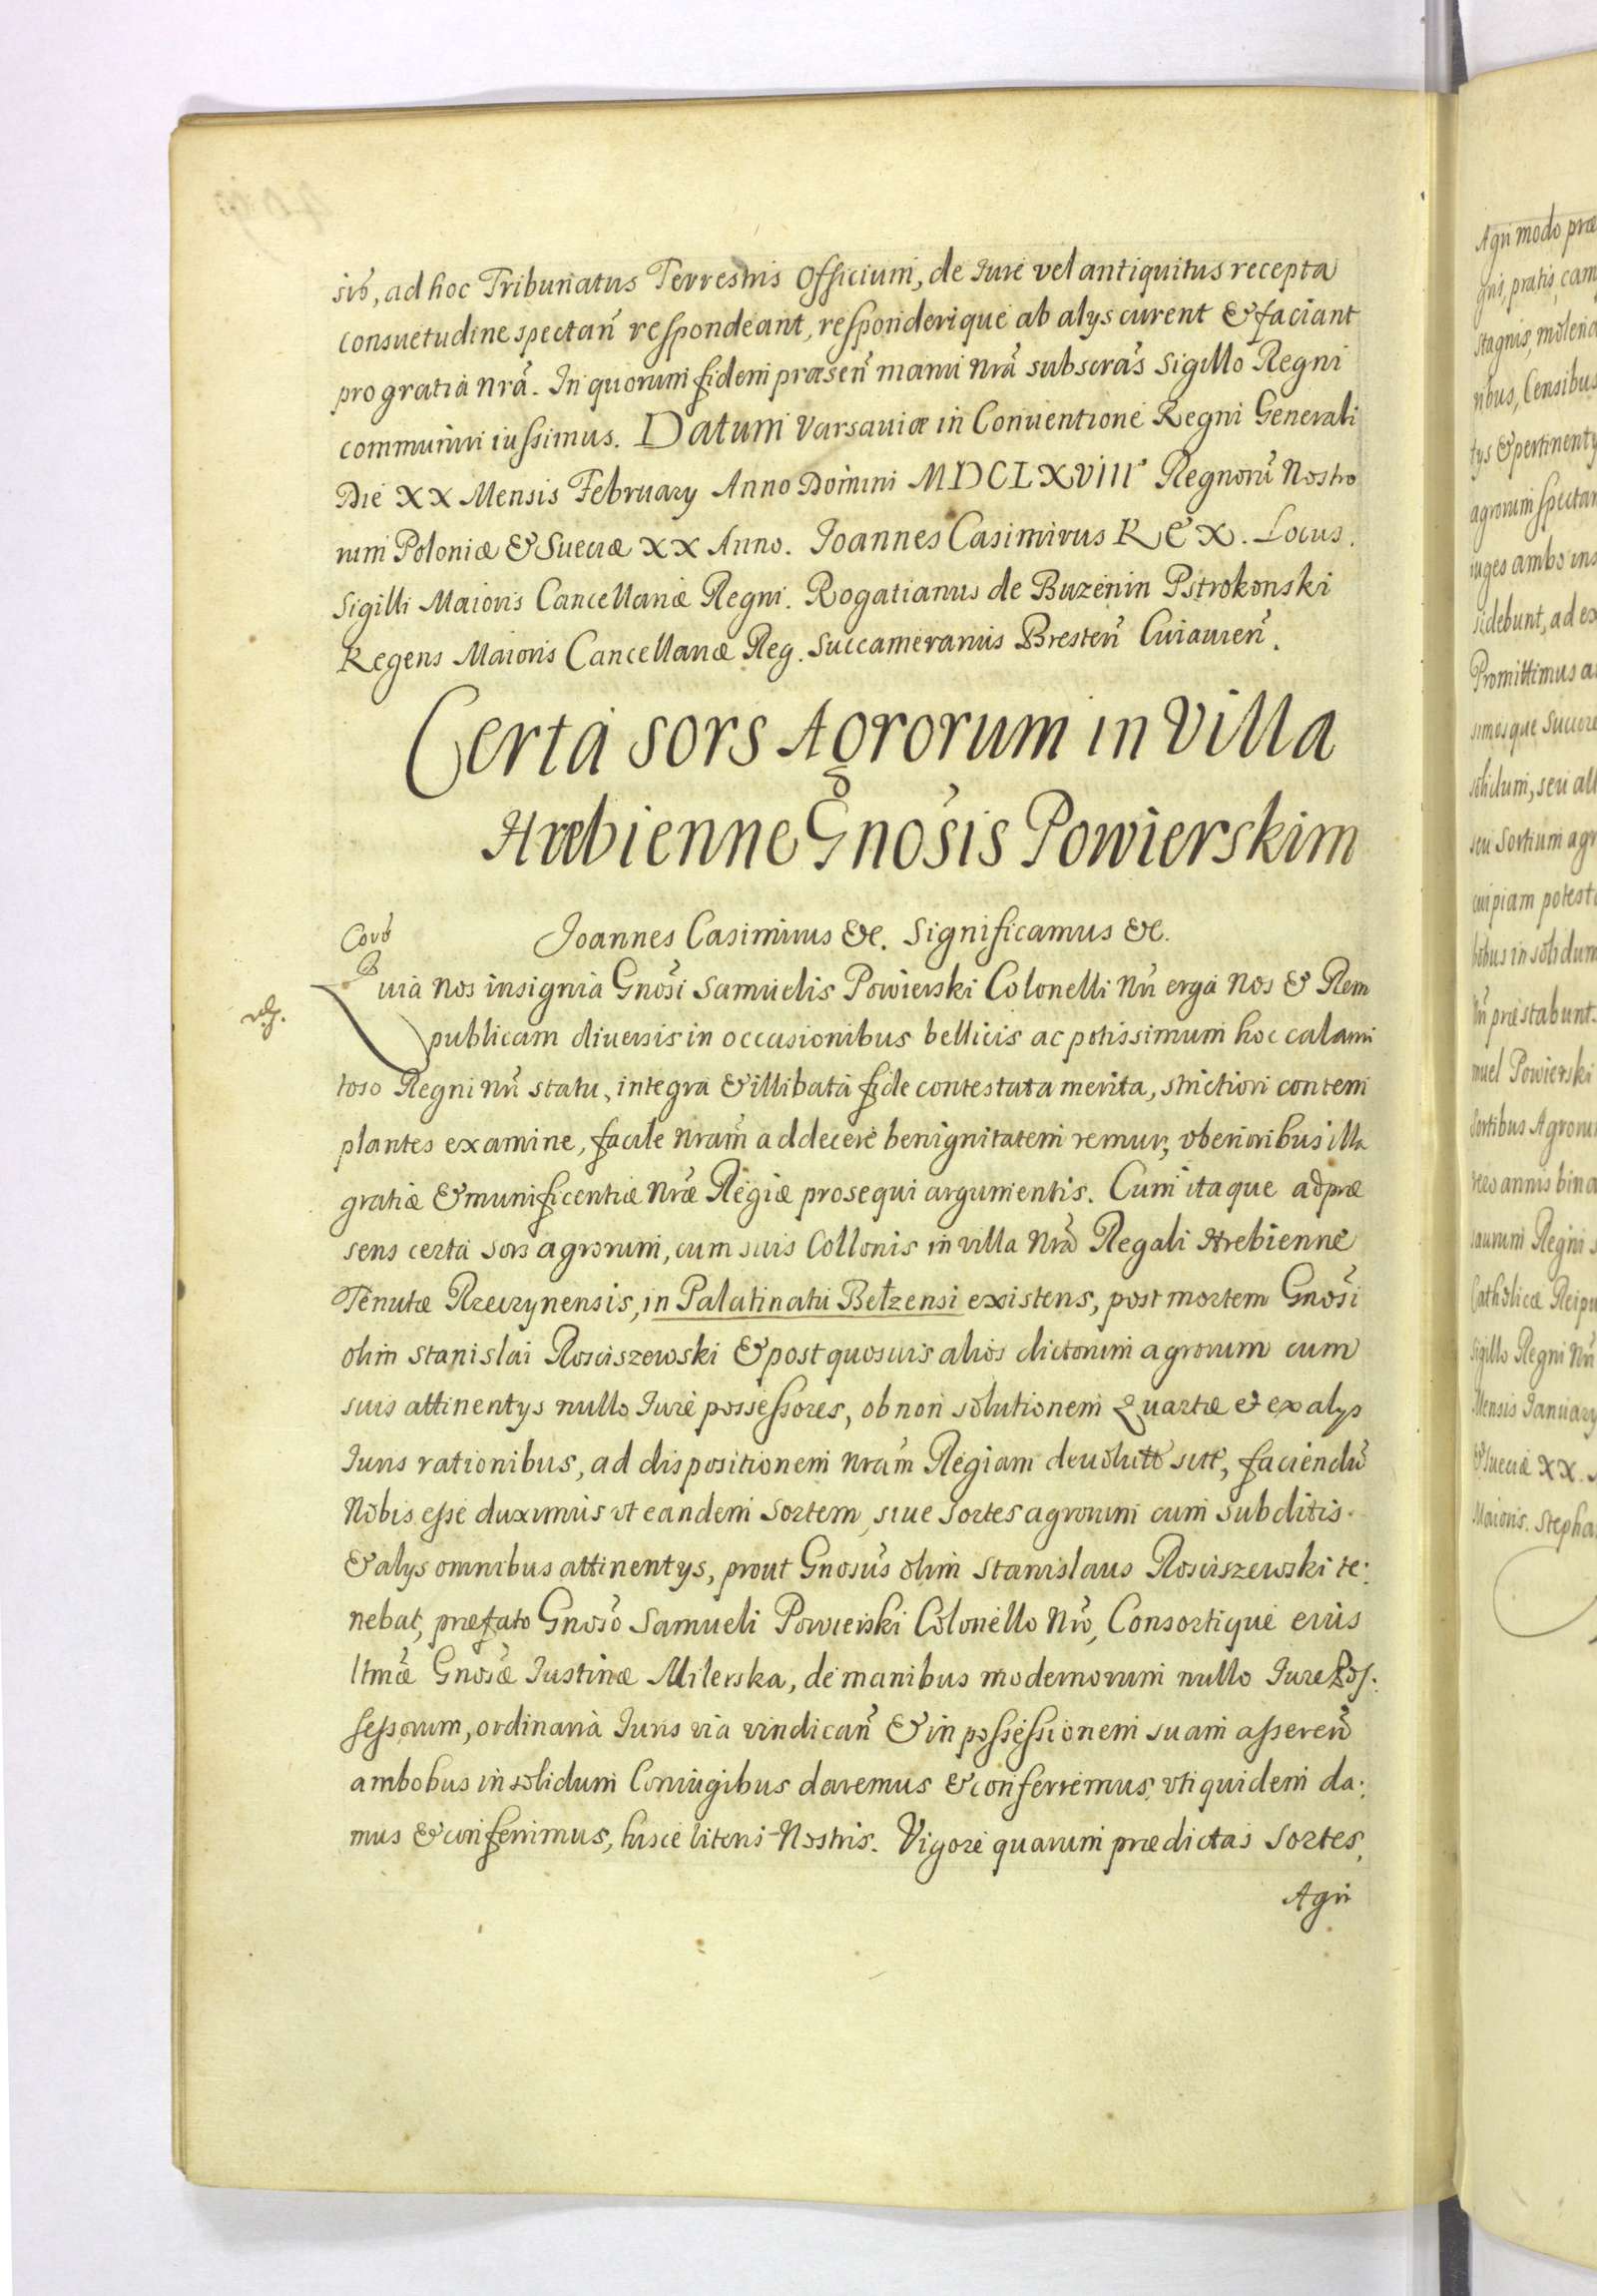 sis, ad hoc Tribunatus Terrestris Officium, de Iure vel antiquitus recepta
consuetudine spectan̄ respondeant, responderique ab alys curent & faciant
pro gratia nrã. In quorum fidem præsen̄ manu nrã subscrãs Sigillo Regni
communiri iussimus. Datum Varsauiæ in Conuentione Regni Generali
Die XX Mensis February Anno Domini MDCLXVIII Regnorũ Nostro
rum Poloniæ & Sueciæ XX Anno. Joannes Casimirus REX. Locus
Sigilli Maioris Cancellariæ Regni. Rogatianus de Buzenin Pstrokonski
Regens Maioris Cancellariæ Reg. Succamerarius Bresten̄ Cuiauien̄.
Certa sors Agrorum in Villa
Hrebienne Gnosis Powierskim
Joannes Casimirus &c. Significamus &c.
Quia Nos insignia Gnosi Samuelis Powierski Colonelli Nri erga Nos & Rem
publicam diuersis in occasionibus bellicis ac potissimum hoc calami
toso Regni nri statu, integra & illibata fide contestata merita, strictiori contem
plantes examine, facile nram̄ addecere benignitatem remur, vberioribus illa
gratiæ & munificentiæ Nræ Regiæ prosequi argumentis. Cum itaque ad præ
sens certa sors agrorum, cum suis Collonis in villa Nrã Regali Hrebienne
Tenutæ Rzeczynensis, in Palatinatu Betzensi existens, post mortem Gnosi
olim Stanislai Rosciszewski & post quosuis alios dictorum agrorum cum
suis attinentys nullo Iure possessores, ob non solutionem Quartæ et ex alys
Iuris rationibus, ad dispositionem nram̄ Regiam deuolutæ sitt, faciendũ
Nobis esse duximus vt eandem Sortem, siue Sortes agrorum cum subditis
& alys omnibus attinentys, prout Gnosus olim Stanislaus Rosciszewski te:
nebat, præfato Gnoso Samueli Powierski Colonello Nro, Consortique eius
ltmæ Gnosæ Iustinæ Milerska, de manibus modernorum nullo Iure Pos:
sessorum, ordinaria Iuris via vindican̄ & in possessionem suam asseren̄
ambobus in solidum Coniugibus daremus & conferremus, vti quidem da:
mus & conferimus, hisce literis Nostris. Vigore quarum prædictas Sortes,
Agri